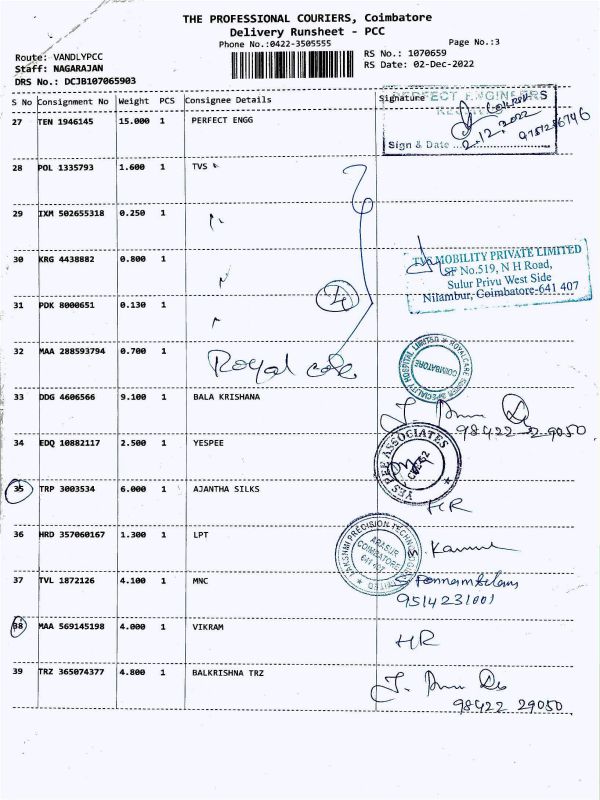 THE PROFESSIONAL COURIERS, Coimbatore
Delivery Runsheet - PCC
Phone No.:0422-3505555
Page No.:3
Route: VANDLYPCC
RS No.: 1070659
Staff: NAGARAJAN
RS Date: 02-Dec-2022
DRS No.: DCJB107065903
S No Consignment No Weight PCS Consignee Details Signature
PERFECT ENGINEERS
27 TEN 1946145 15.000 1 PERFECT ENGG
2.12.2022
9751256746
Sign & Date
28 POL 1335793 1.600 1 TVS
29 IXM 502655318 0.250 1 "
30 KRG 4438882 0.800 1 "
TVS MOBILITY PRIVATE LIMITED
SF No.519, N H Road,
Sulur Privu West Side
Nilambur, Coimbatore-641 407
31 PDK 8000651 0.130 1 "
32 MAA 288593794 0.700 1 Royal care
ROYALCARE SUPER SPECIALITY HOSPITAL LIMITED
COIMBATORE
33 DDG 4606566 9.100 1 BALA KRISHANA
98422-29050
34 EDQ 10882117 2.500 1 YESPEE
YES PEE ASSOCIATES
35 TRP 3003534 6.000 1 AJANTHA SILKS
HR
36 HRD 357060167 1.300 1 LPT
LAKSHMI PRECISION TECHNOLOGIES LIMITED
ARASUR
COIMBATORE
641 407
37 TVL 1872126 4.100 1 MNC
S. Ponnambalam
9514231001
38 MAA 569145198 4.000 1 VIKRAM
HR
39 TRZ 365074377 4.800 1 BALKRISHNA TRZ
98422 29050